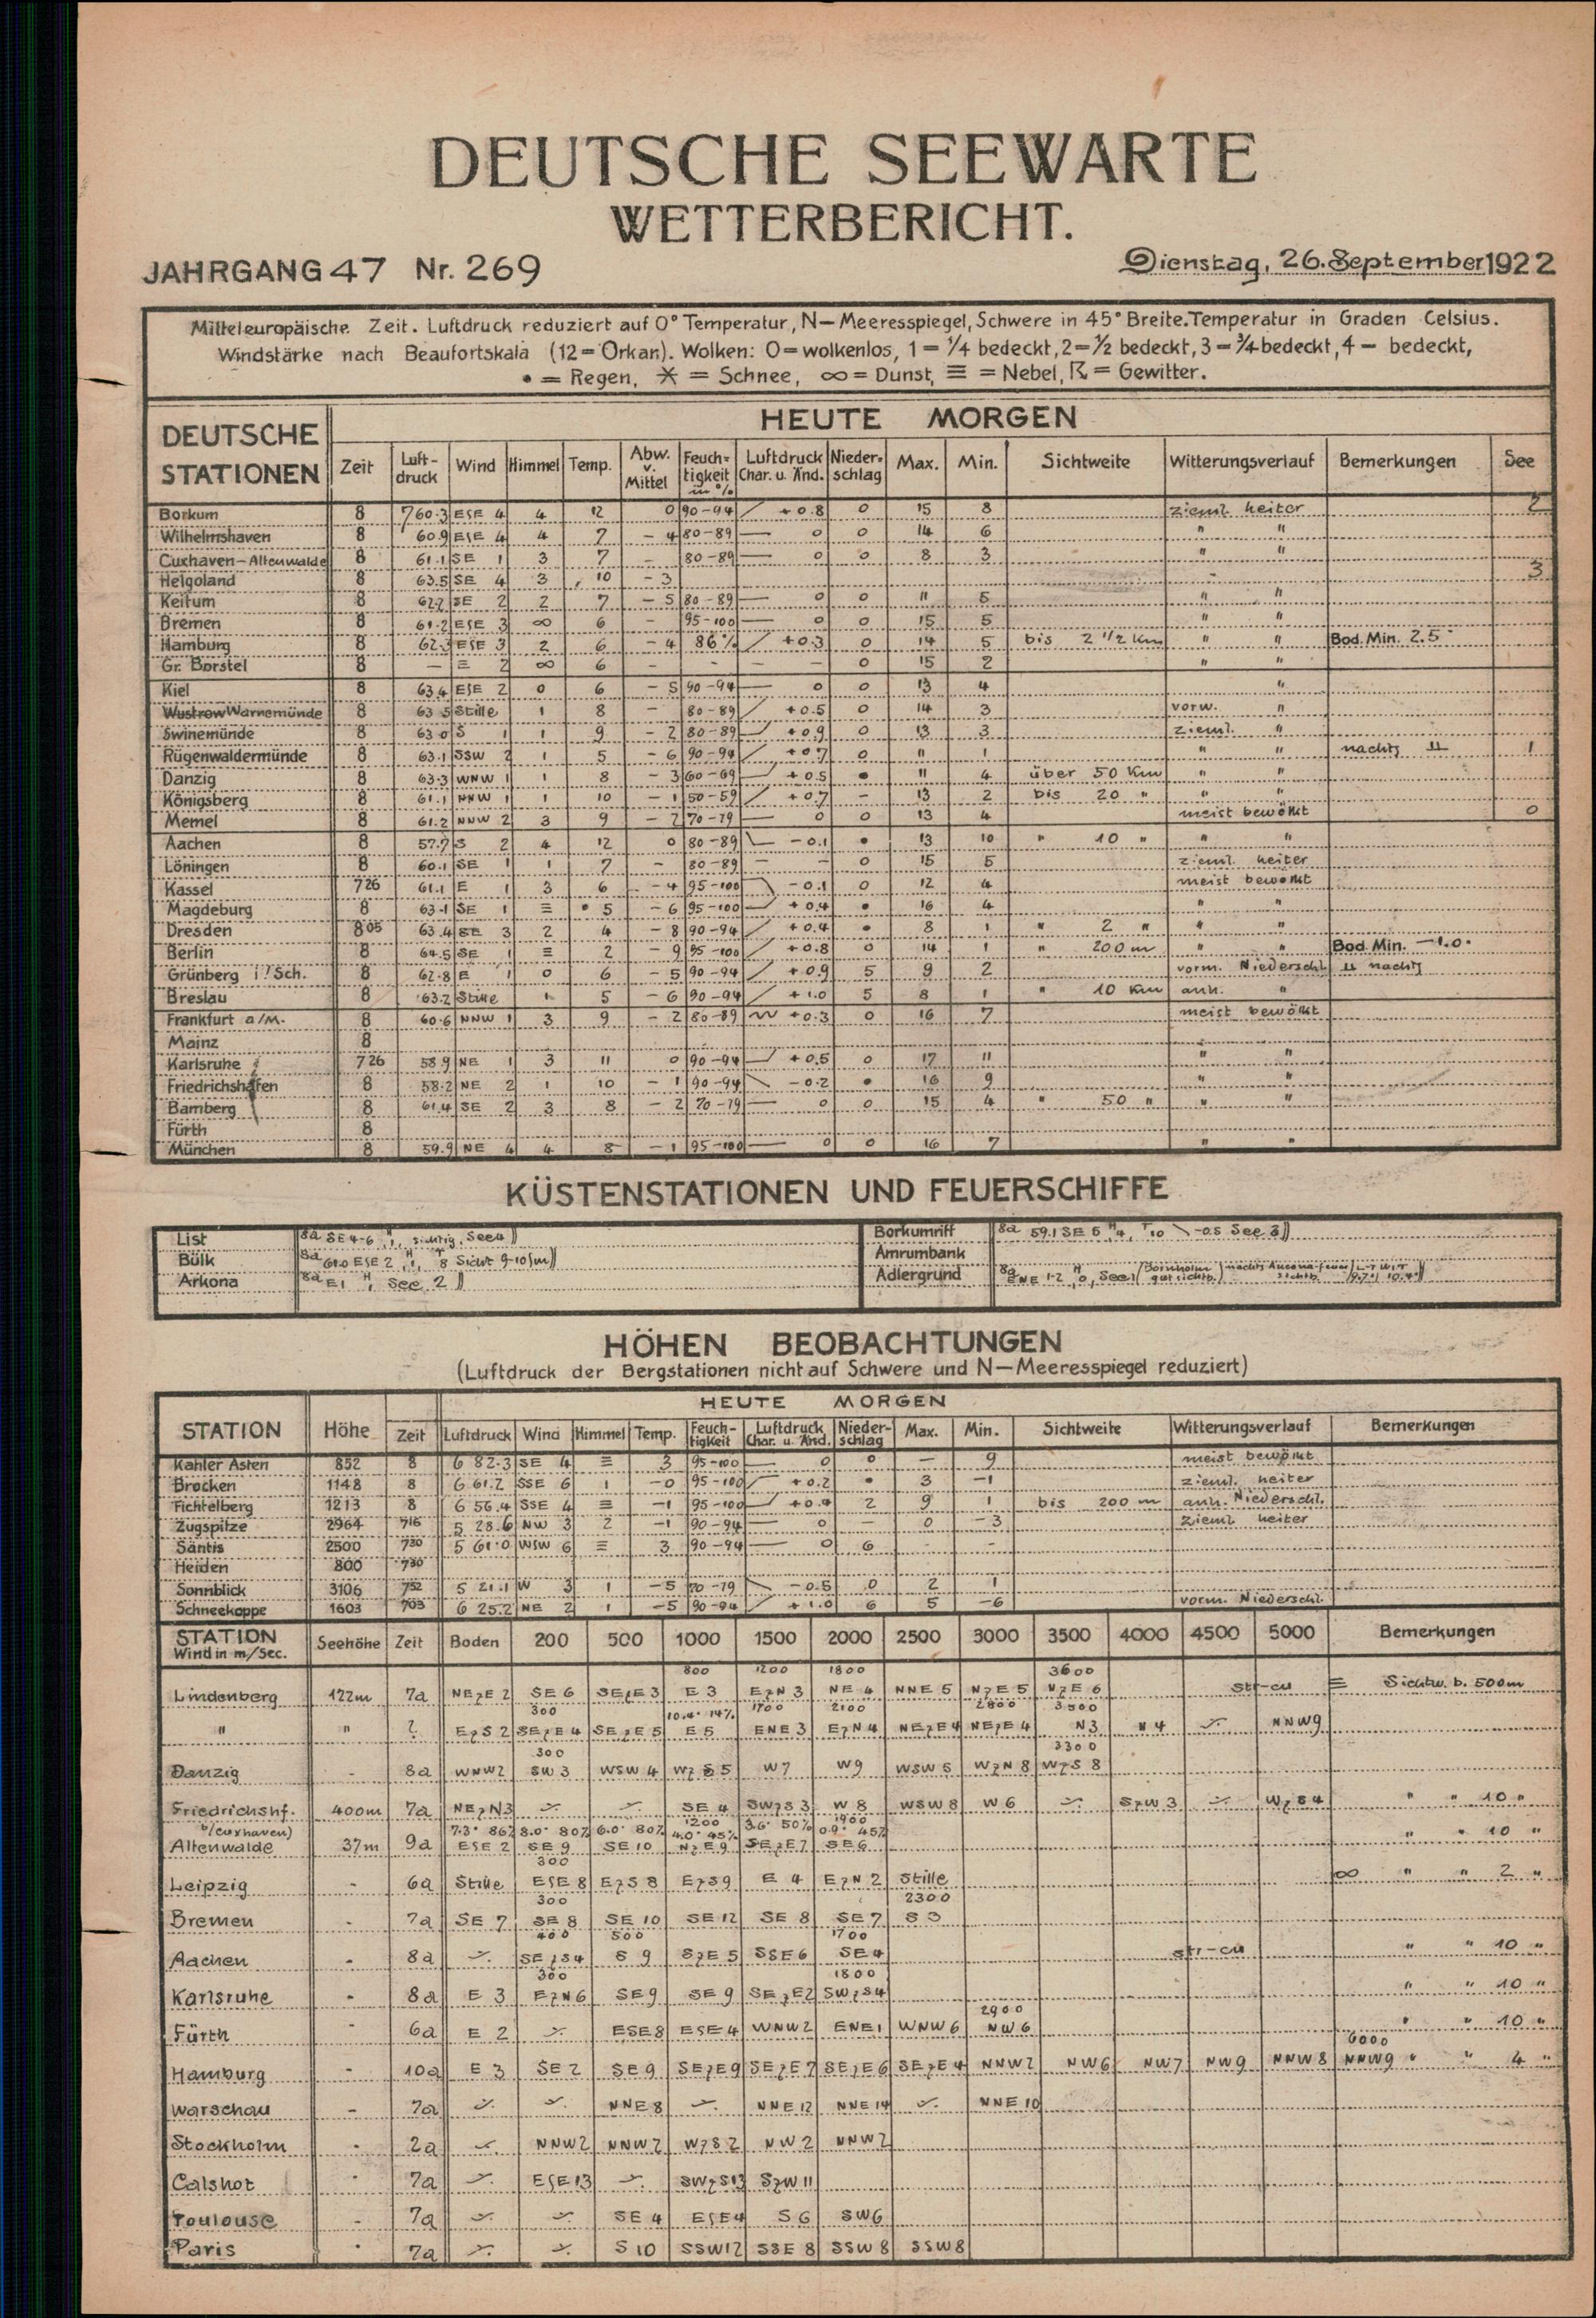 DEUTSCHE SEEWARTE
WETTERBERICHT.
JAHRGANG 47 Nr. 269 Dienstag, 26. September 1922
Mitteleuropäische Zeit. Luftdruck reduziert auf 0° Temperatur, N—Meeresspiegel, Schwere in 45° Breite. Temperatur in Graden Celsius.
Windstärke nach Beaufortskala (12 = Orkan). Wolken: 0 = wolkenlos, 1 = 1/4 bedeckt, 2 = 1/2 bedeckt, 3 = 3/4 bedeckt, 4 — bedeckt,
• = Regen, ✳ = Schnee, ∞ = Dunst, ≡ = Nebel, ☈ = Gewitter.
DEUTSCHE STATIONEN HEUTE MORGEN
Zeit Luftdruck Wind Himmel Temp. Abw. v. Mittel Feuchtigkeit in % Luftdruck Char. u. Änd. Niederschlag Max. Min. Sichtweite Witterungsverlauf Bemerkungen See
Borkum 8 760.3 ESE 4 4 12 0 90-94 / +0.8 0 15 8 zieml. heiter 2
Wilhelmshaven 8 60.9 ESE 4 4 7 -4 80-89 — 0 0 14 6 " "
Cuxhaven-Altenwalde 8 61.1 SE 1 3 7 - 80-89 — 0 0 8 3 " "
Helgoland 8 63.5 SE 4 3 10 -3 3
Keitum 8 62.2 SE 2 2 7 -5 80-89 — 0 0 11 5 " "
Bremen 8 61.2 ESE 3 ∞ 6 - 95-100 — 0 0 15 5 " "
Hamburg 8 62.3 ESE 3 2 6 -4 86% / +0.3 0 14 5 bis 2 1/2 Km " " Bod. Min. 2.5°
Gr. Borstel 8 — E 2 ∞ 6 - - - - 0 15 2 " "
Kiel 8 63.4 ESE 2 0 6 -5 90-94 — 0 0 13 4 "
Wustrow Warnemünde 8 63.5 Stille 1 8 - 80-89 / +0.5 0 14 3 vorw. "
Swinemünde 8 63.0 S 1 1 9 -2 80-89 / +0.9 0 13 3 zieml. "
Rügenwaldermünde 8 63.1 SSW 2 1 5 -6 90-94 / +0.7 0 11 1 " " nachts ⊔ 1
Danzig 8 63.3 WNW 1 1 8 -3 60-69 / +0.5 • 11 4 über 50 Km " "
Königsberg 8 61.1 NNW 1 1 10 -1 50-59 / +0.7 - 13 2 bis 20 " " "
Memel 8 61.2 NNW 2 3 9 -2 70-79 — 0 0 13 4 meist bewölkt 0
Aachen 8 57.7 S 2 4 12 0 80-89 \ -0.1 • 13 10 " 10 " " "
Löningen 8 60.1 SE 1 1 7 - 80-89 - - 0 15 5 zieml. heiter
Kassel 7 26 61.1 E 1 3 6 -4 95-100 \ -0.1 0 12 4 meist bewölkt
Magdeburg 8 63.1 SE 1 ≡ • 5 -6 95-100 / +0.4 • 16 4 " "
Dresden 8 05 63.4 SE 3 2 4 -8 90-94 / +0.4 • 8 1 " 2 " " "
Berlin 8 64.5 SE 1 ≡ 2 -9 95-100 / +0.8 0 14 1 " 200 m " " Bod. Min. -1.0°
Grünberg i/Sch. 8 62.8 E 1 0 6 -5 90-94 / +0.9 5 9 2 vorm. Niederschl. ⊔ nachts
Breslau 8 63.2 Stille 1 5 -6 90-94 / +1.0 5 8 1 " 10 Km anh. "
Frankfurt a/M. 8 60.6 NNW 1 3 9 -2 80-89 +0.3 0 16 7 meist bewölkt
Mainz 8
Karlsruhe 7 26 58.9 NE 1 3 11 0 90-94 / +0.5 0 17 11 " "
Friedrichshafen 8 58.2 NE 2 1 10 -1 90-94 \ -0.2 • 16 9 " "
Bamberg 8 61.4 SE 2 3 8 -2 70-79 — 0 0 15 4 " 50 " " "
Fürth 8
München 8 59.9 NE 4 4 8 -1 95-100 — 0 0 16 7 " "
KÜSTENSTATIONEN UND FEUERSCHIFFE
List 8a SE 4-6, H 1, sichtig, See 4 Borkumriff 8a 59.1 SE 5 H 4, T 10 \ -0.5 See 3
Bülk 8a 61.0 ESE 2, H 1, T 8 Sicht 9-10 sm Amrumbank
Arkona 8a E 1 H 1, See 2 Adlergrund 8a ENE 1-2 H 0, See 1 Bornholm gut sichtb. nachts
HÖHEN BEOBACHTUNGEN
(Luftdruck der Bergstationen nicht auf Schwere und N—Meeresspiegel reduziert)
STATION Höhe HEUTE MORGEN
Zeit Luftdruck Wind Himmel Temp. Feuchtigkeit Luftdruck Char. u. Änd. Niederschlag Max. Min. Sichtweite Witterungsverlauf Bemerkungen
Kahler Asten 852 8 682.3 SE 4 ≡ 3 95-100 — 0 0 — 9 meist bewölkt
Brocken 1148 8 661.2 SSE 6 1 -0 95-100 / +0.2 • 3 -1 zieml. heiter
Fichtelberg 1213 8 656.4 SSE 4 ≡ -1 95-100 / +0.4 2 9 1 bis 200 m anh. Niederschl.
Zugspitze 2964 7 16 528.6 NW 3 2 -1 90-94 — 0 - 0 -3 zieml. heiter
Säntis 2500 7 30 561.0 WSW 6 ≡ 3 90-94 — 0 6 - -
Heiden 800 7 30
Sonnblick 3106 7 52 521.1 W 3 1 -5 70-79 \ -0.5 0 2 1
Schneekoppe 1603 7 03 625.2 NE 2 1 -5 90-94 / +1.0 6 5 -6 vorm. Niederschl.
STATION Wind in m/Sec. Seehöhe Zeit Boden 200 500 1000 1500 2000 2500 3000 3500 4000 4500 5000 Bemerkungen
800 1200 1800 3600
Lindenberg 122m 7a NEzE 2 SE 6 SEzE 3 E 3 EzN 3 NE 4 NNE 5 NzE 5 NzE 6 str-cu ≡ Sichtw. b. 500m
300 10.4° 14% 1700 2100 2800 3500
" " 2 EzS 2 SEzE 4 SEzE 5 E 5 ENE 3 EzN 4 NEzE 4 NEzE 4 N 3 N 4 ⁒ NNW 9
300 3300
Danzig - 8a WNW 2 SW 3 WSW 4 WzS 5 W 7 W 9 WSW 5 WzN 8 WzS 8
Friedrichshf. 400m 7a NEzN 3 ⁒ ⁒ SE 4 SWzS 3 W 8 WSW 8 W 6 ⁒ SzW 3 ⁒ WzS 4 " " 10 "
1200 1900
b/Cuxhaven) 7.3° 86% 8.0° 80% 6.0° 80% 4.0° 45% 3.6° 50% 0.9° 45%
Altenwalde 37m 9a ESE 2 SE 9 SE 10 NzE 9 SEzE 7 SE 6 " " 10 "
300
Leipzig - 6a Stille ESE 8 EzS 8 EzS 9 E 4 EzN 2 Stille ∞ " " 2 "
300 2300
Bremen - 7a SE 7 SE 8 SE 10 SE 12 SE 8 SE 7 S 3
400 500 1700
Aachen - 8a ⁒ SEzS 4 S 9 SzE 5 SSE 6 SE 4 str-cu " " 10 "
300 1800
Karlsruhe - 8a E 3 EzN 6 SE 9 SE 9 SEzE 2 SWzS 4 " " 10 "
2900
Fürth - 6a E 2 ⁒ ESE 8 ESE 4 WNW 2 ENE 1 WNW 6 NW 6 " " 10 "
6000
Hamburg - 10a E 3 SE 2 SE 9 SEzE 9 SEzE 7 SEzE 6 SEzE 4 NNW 2 NW 6 NW 7 NW 9 NNW 8 NNW 9 " " 4 "
Warschau - 7a ⁒ ⁒ NNE 8 ⁒ NNE 12 NNE 14 ⁒ NNE 10
Stockholm - 2a ⁒ NNW 2 NNW 2 WzS 2 NW 2 NNW 2
Calshot - 7a ⁒ ESE 13 ⁒ SWzS 13 SzW 11
Toulouse - 7a ⁒ ⁒ SE 4 ESE 4 S 6 SW 6
Paris - 7a ⁒ ⁒ S 10 SSW 12 SSE 8 SSW 8 SSW 8